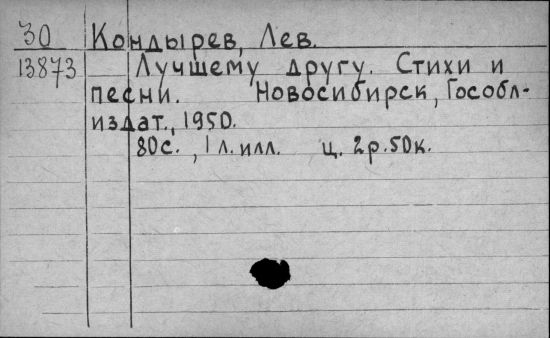 30 Кондырев, Лев.
13873 Лучшему другу. Стихи и
песни. Новосибирск, Гособл-
издат., 1950.
80с., 1 л. илл. ц. 2р. 50к.